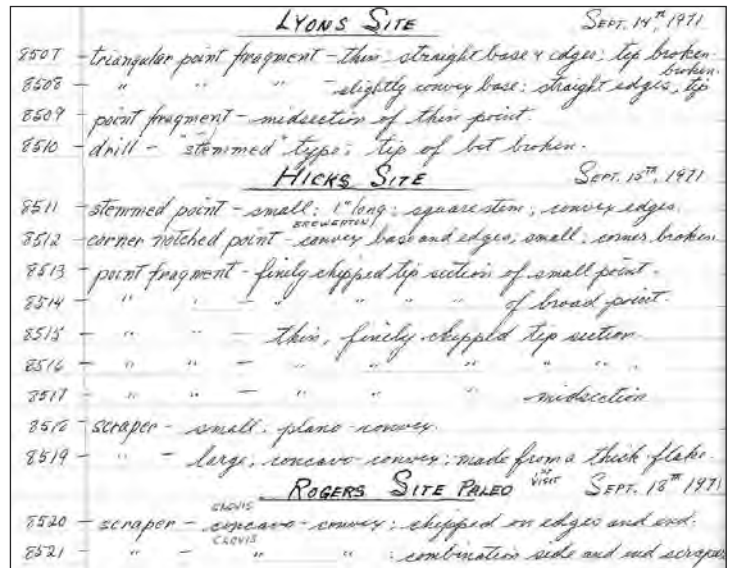 LYONS SITE SEPT. 14TH, 1971
8507 - triangular point fragment - thin; straight base & edges; tip broken.
8508 - " " " - slightly convex base; straight edges; tip broken.
8509 - point fragment - midsection of thin point.
8510 - drill - "stemmed" type; tip of bit broken.
HICKS SITE SEPT. 15TH, 1971
8511 - stemmed point - small; 1" long; square stem; convex edges.
BREWERTON
8512 - corner notched point - convex base and edges; small; corner broken
8513 - point fragment - finely chipped tip section of small point.
8514 - " " - " " " " of broad point.
8515 - " " - thin, finely chipped tip section.
8516 - " " - " " " " " .
8517 - " " - " " " midsection
8518 - scraper - small; plano-convex.
8519 - " - large; concavo-convex; made from a thick flake.
ROGERS SITE PALEO 1ST VISIT SEPT. 18TH 1971
CLOVIS
8520 - scraper - concavo-convex; chipped on edges and end.
CLOVIS
8521 - " - " " : combination side and end scraper